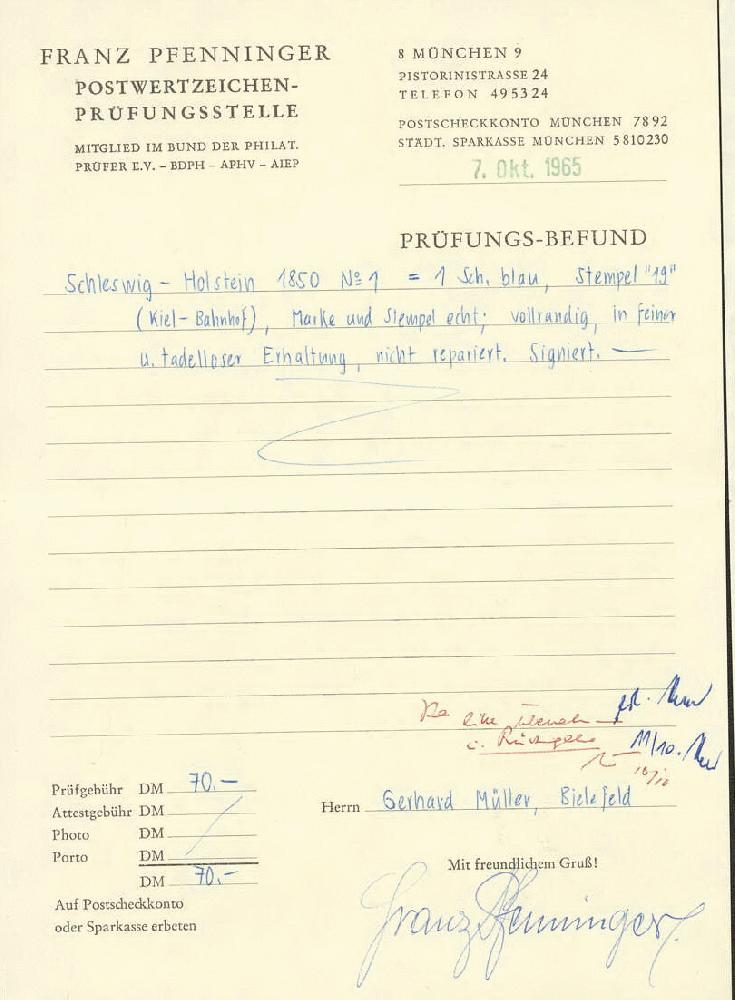 FRANZ PFENNINGER
POSTWERTZEICHEN-
PRÜFUNGSSTELLE
MITGLIED IM BUND DER PHILAT.
PRÜFER E.V. – BDPH – APHV – AIEP
8 MÜNCHEN 9
PISTORINISTRASSE 24
TELEFON 495324
POSTSCHECKKONTO MÜNCHEN 7892
STÄDT. SPARKASSE MÜNCHEN 5810230
7. Okt. 1965
PRÜFUNGS-BEFUND
Schleswig – Holstein 1850 № 1 = 1 Sch. blau, Stempel "19"
(Kiel-Bahnhof), Marke und Stempel echt; vollrandig, in feiner
u. tadelloser Erhaltung, nicht repariert. Signiert. —
11/10.
Prüfgebühr DM 70.–
Attestgebühr DM
Photo DM
Porto DM
DM 70.–
Auf Postscheckkonto
oder Sparkasse erbeten
Herrn Gerhard Müller, Bielefeld
Mit freundlichem Gruß!
Franz Pfenninger